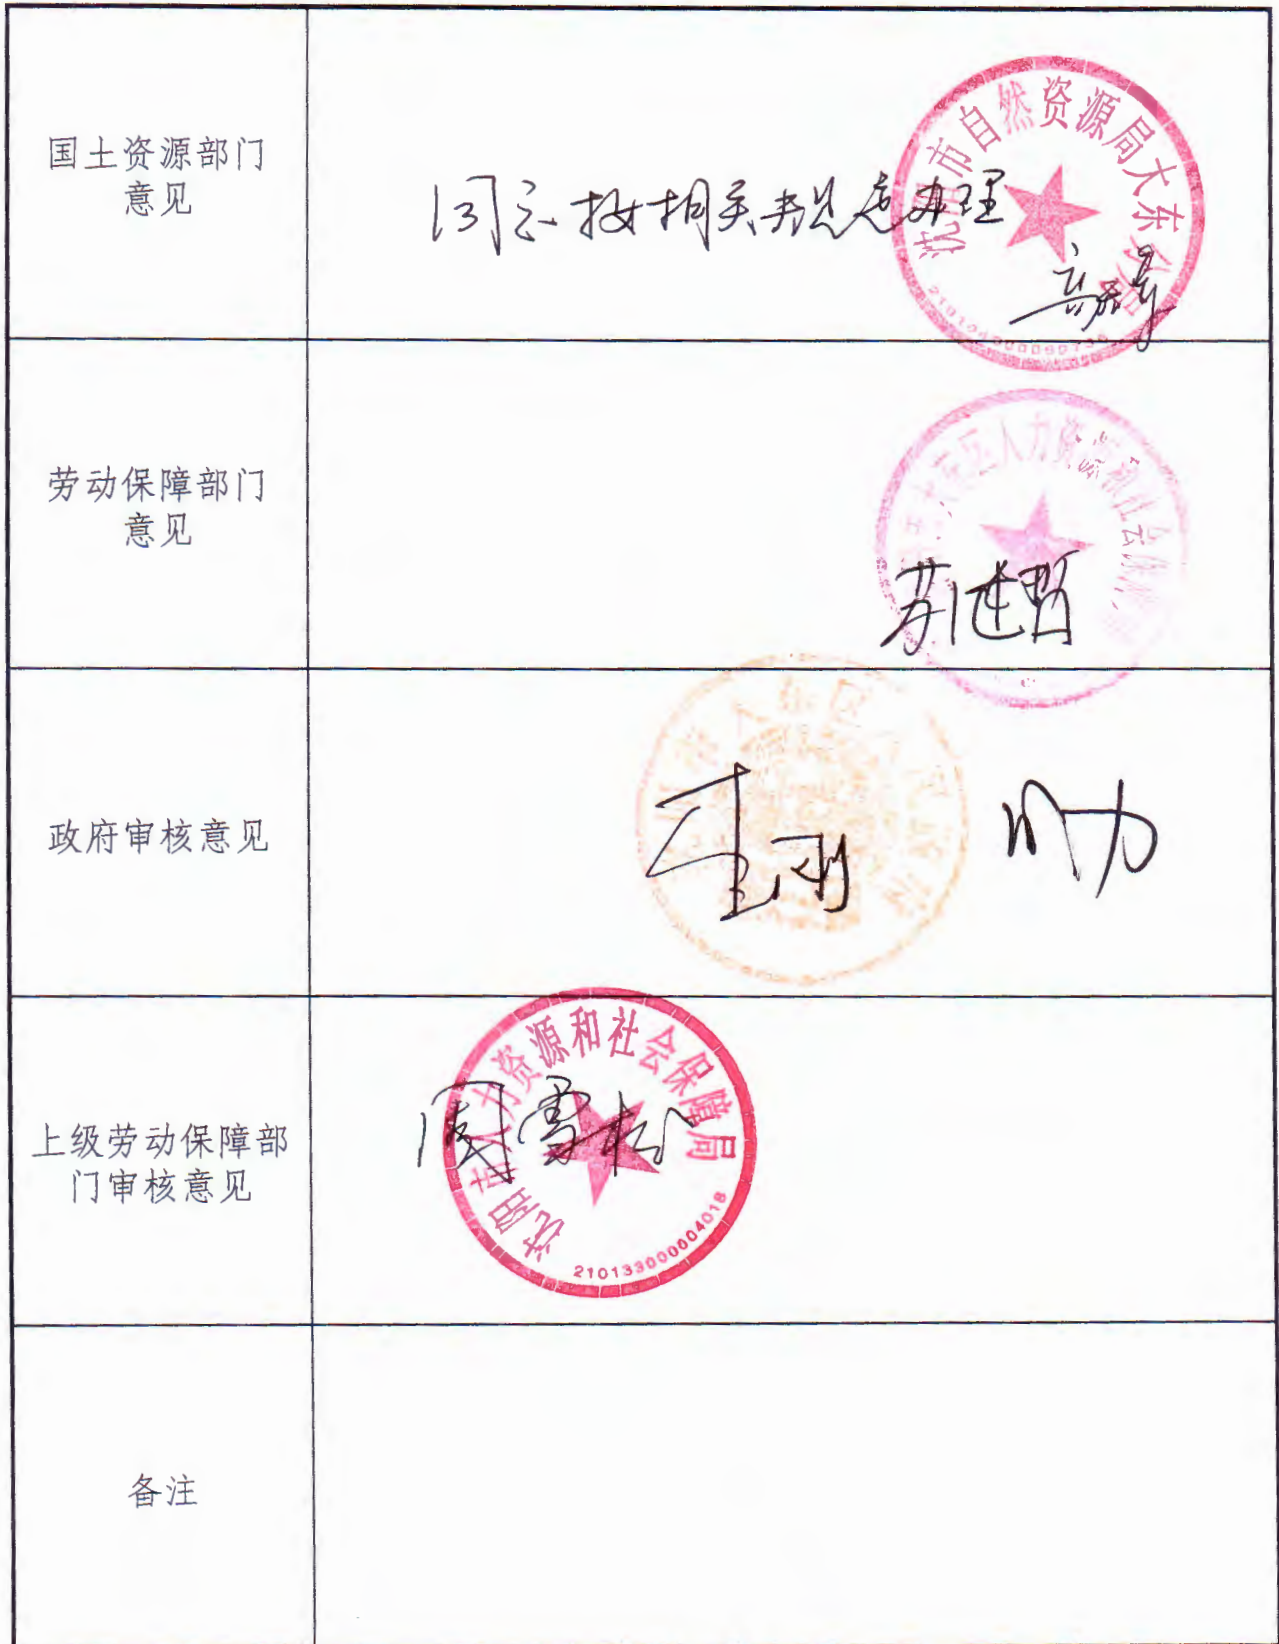 国土资源部门
意见
同意按相关规定办理
沈阳市自然资源局大东分局
劳动保障部门
意见
大东区人力资源和社会保障
政府审核意见
王刚
上级劳动保障部
门审核意见
周雪松
沈阳市人力资源和社会保障局
2101330000004018
备注